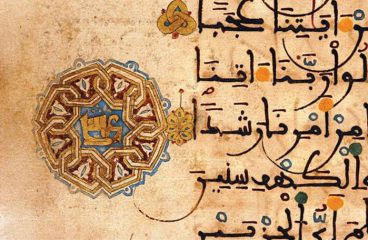 ايتنا عجبا
لوا ربنا اتنا
من امرنا رشدا
الكهف سنين
اي الحزبين